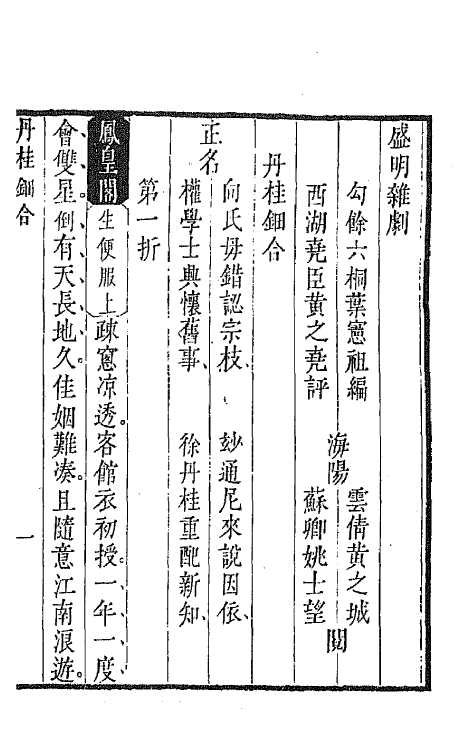 盛明雜劇
勾餘六桐葉憲祖編
海陽
雲倩黃之城
西湖堯臣黃之堯評
蘇卿姚士望
閱
丹桂鈿合
正名
向氏毋錯認宗枝、
玅通尼來說因依、
權學士興懷舊事、
徐丹桂重配新知、
第一折
鳳皇閣
生便服上
疎窻凉透。客館衣初授。一年一度
會雙星。倒有天長地久。佳姻難凑。且隨意江南浪遊。
丹桂鈿合
一